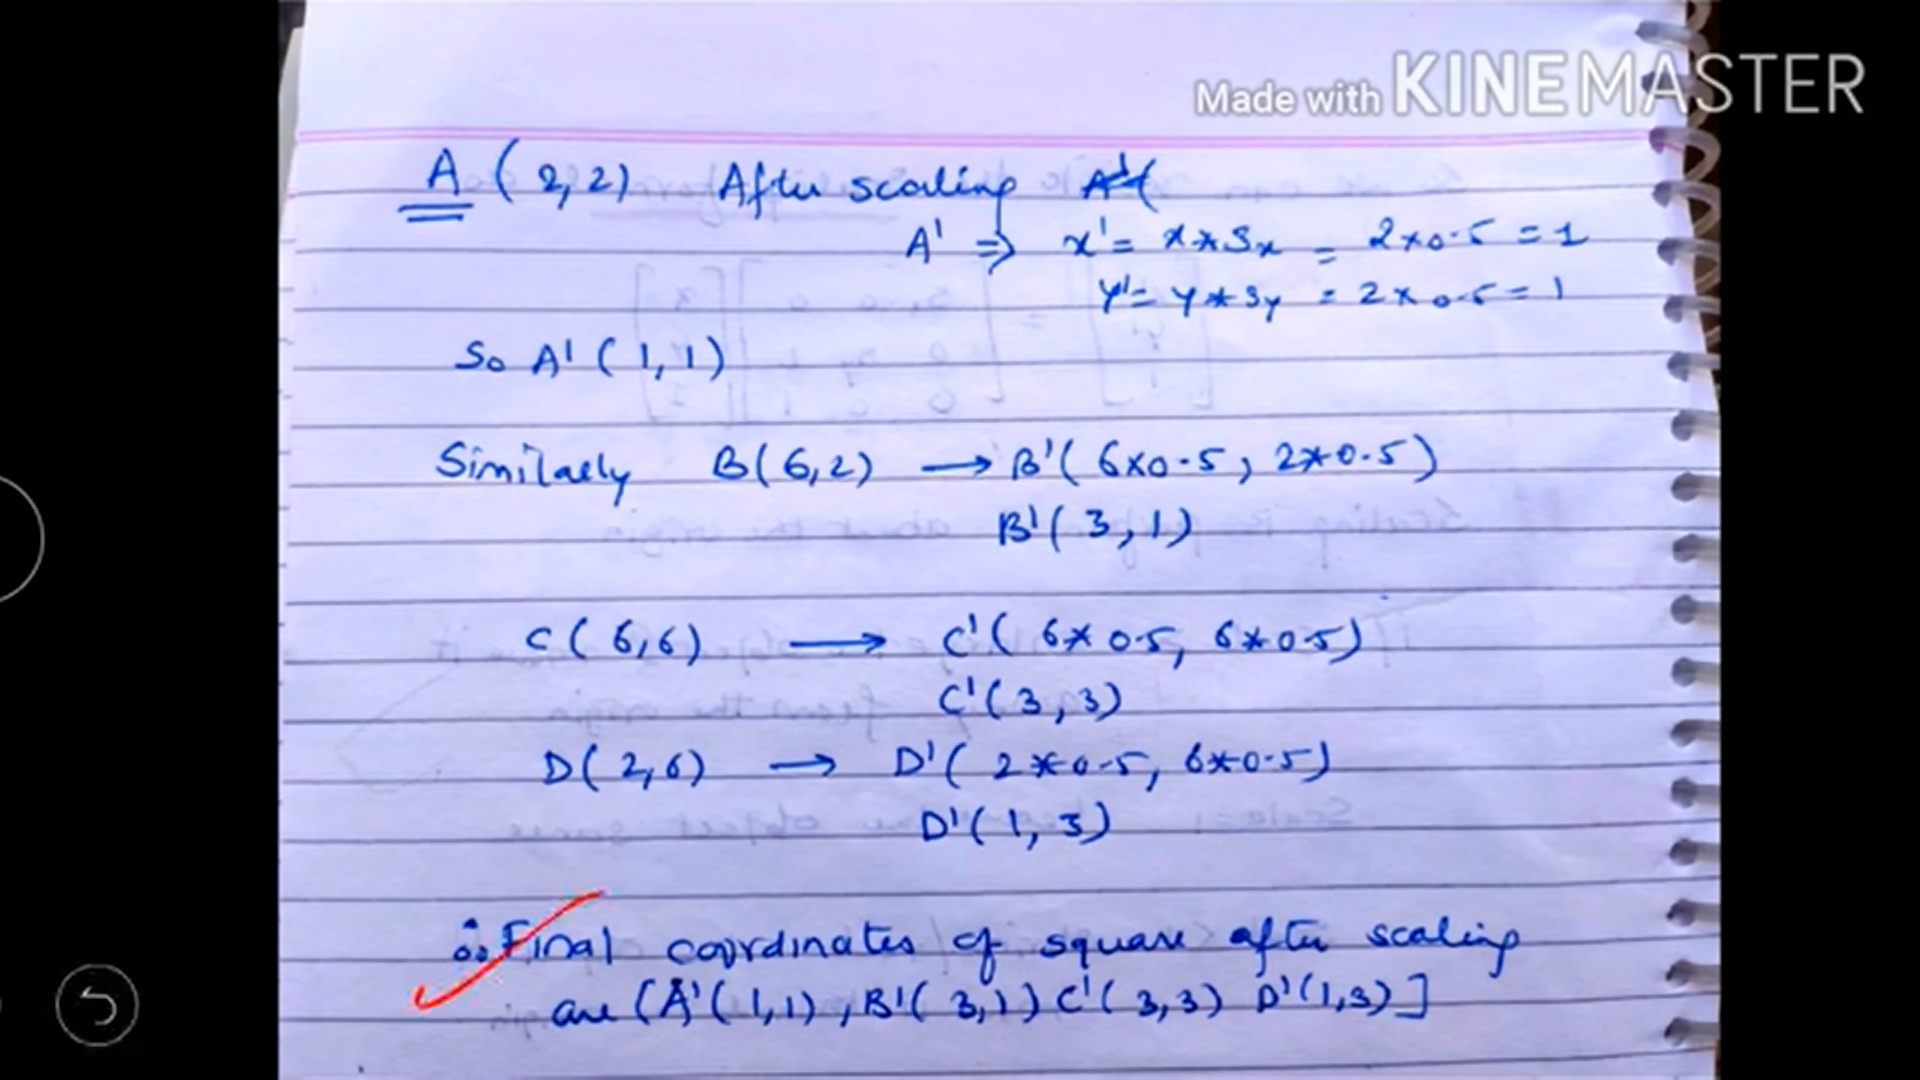 Made with KINEMASTER
A (2,2) After scaling A'(
A' ⇒ x' = x * Sx = 2*0.5 = 1
y' = y * Sy = 2*0.5 = 1
So A' (1,1)
Similarly B(6,2) → B'( 6*0.5, 2*0.5)
B'( 3, 1)
C( 6,6) → C'( 6* 0.5, 6*0.5)
C'( 3, 3)
D( 2,6) → D'( 2*0.5, 6*0.5)
D'( 1, 3)
∴ Final coordinates of square after scaling
are [A'( 1,1) , B'( 3,1) C'( 3,3) D'(1,3)]